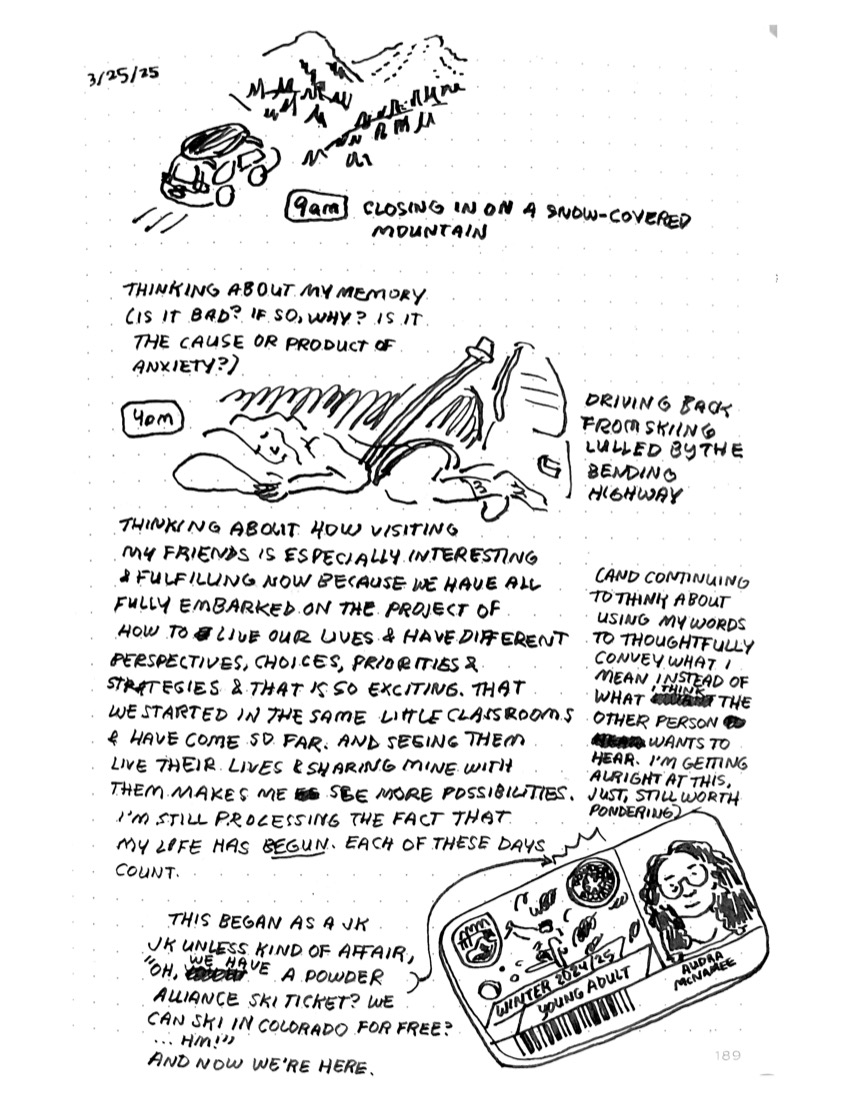 3/25/25
9am CLOSING IN ON A SNOW-COVERED
MOUNTAIN
THINKING ABOUT MY MEMORY
(IS IT BAD? IF SO, WHY? IS IT
THE CAUSE OR PRODUCT OF
ANXIETY?)
4pm
DRIVING BACK
FROM SKIING
LULLED BY THE
BENDING
HIGHWAY
THINKING ABOUT HOW VISITING
MY FRIENDS IS ESPECIALLY INTERESTING
& FULFILLING NOW BECAUSE WE HAVE ALL
FULLY EMBARKED ON THE PROJECT OF
HOW TO LIVE OUR LIVES & HAVE DIFFERENT
PERSPECTIVES, CHOICES, PRIORITIES &
STRATEGIES & THAT IS SO EXCITING. THAT
WE STARTED IN THE SAME LITTLE CLASSROOMS
& HAVE COME SO FAR. AND SEEING THEM
LIVE THEIR LIVES & SHARING MINE WITH
THEM MAKES ME SEE MORE POSSIBILITIES.
I'M STILL PROCESSING THE FACT THAT
MY LIFE HAS BEGUN. EACH OF THESE DAYS
COUNT.
(AND CONTINUING
TO THINK ABOUT
USING MY WORDS
TO THOUGHTFULLY
CONVEY WHAT I
MEAN INSTEAD OF
WHAT I THINK THE
OTHER PERSON
WANTS TO
HEAR. I'M GETTING
ALRIGHT AT THIS,
JUST, STILL WORTH
PONDERING)
THIS BEGAN AS A JK
JK UNLESS KIND OF AFFAIR,
"OH, WE HAVE A POWDER
ALLIANCE SKI TICKET? WE
CAN SKI IN COLORADO FOR FREE?
... HM!"
AND NOW WE'RE HERE.
WINTER 2024/25
YOUNG ADULT
AUDRA
MCNAMEE
189